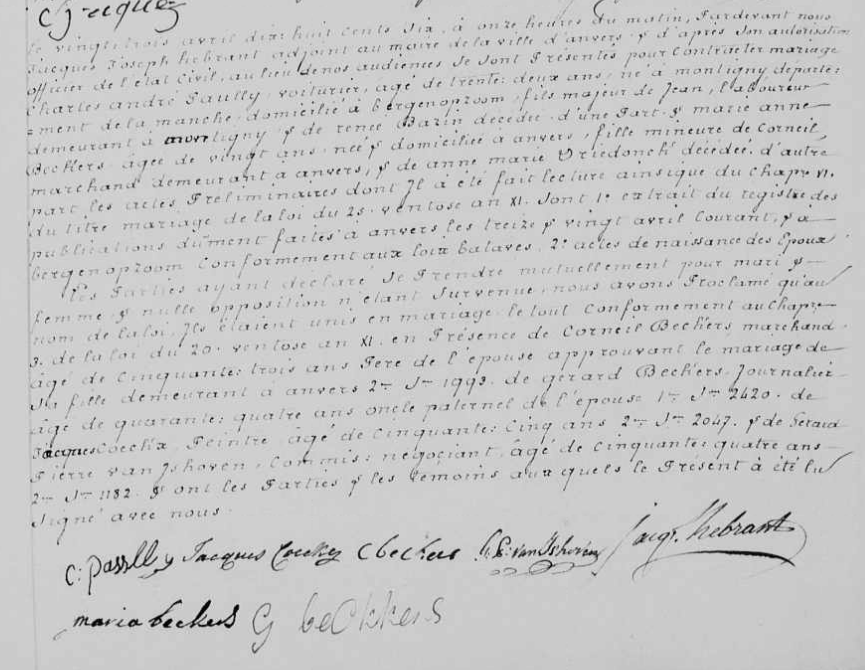 Le vingt trois avril dix huit cents six, à onze heures du matin, Pardevant nous
Jacques Joseph hebrant adjoint au maire de la ville d'anvers, & d'après son autorisation
officier de l'état Civil, au lieu de nos audiences se sont Présentés pour Contracter mariage
Charles andré Paully, voiturier, agé de trente: deux ans, né à montigny départe:
=ment de la manche, domicilié à bergenopzoom, fils majeur de Jean, laboureur
demeurant à montigny & de Barin décédée. d'une Part. & marie anne
Beckers, âgée de vingt ans, née & domiciliée à anvers, fille mineure de Corneil,
marchand demeurant à anvers, & de anne marie Vriedonck décédée. d'autre
part. les actes Preliminaires dont Il a été fait lecture ainsi que du Chapre VI.
du titre mariage de la loi du 25. ventose an XI. sont 1° extrait du registre des
publications dûment faites à anvers les treize & vingt avril Courant, & a
bergenopzoom Conformement aux loix bataves. 2° actes de naissance des Epoux
les Parties ayant déclaré se Prendre mutuellement pour mari &
femme & nulle opposition n'étant survenue, nous avons Proclamé qu'au
nom de la loi, Ils étaient unis en mariage. le tout Conformement au Chapre
3. de la loi du 20. ventose an XI. en Présence de Corneil Beckers marchand
âgé de Cinquante: trois ans Pere de l'épouse approuvant le mariage de
sa fille demeurant à anvers 2me Son 1993. de gerard Beckers, Journalier
âgé de quarante: quatre ans oncle paternel de l'épouse 1re Son 2420. de
Jacques Coeckx, Peintre, âgé de Cinquante: Cinq ans 2me Son 2047. & de Gerard
Pierre van Ishoven, Commis: negociant, âgé de Cinquante: quatre ans
2me Son 1182. & ont les Parties & les témoins auxquels le Présent à été lu
signé avec nous.
Jacques Coeckx C beckers G. P. van Ishoven Jacqs. hebrant
maria beckers G beckkers